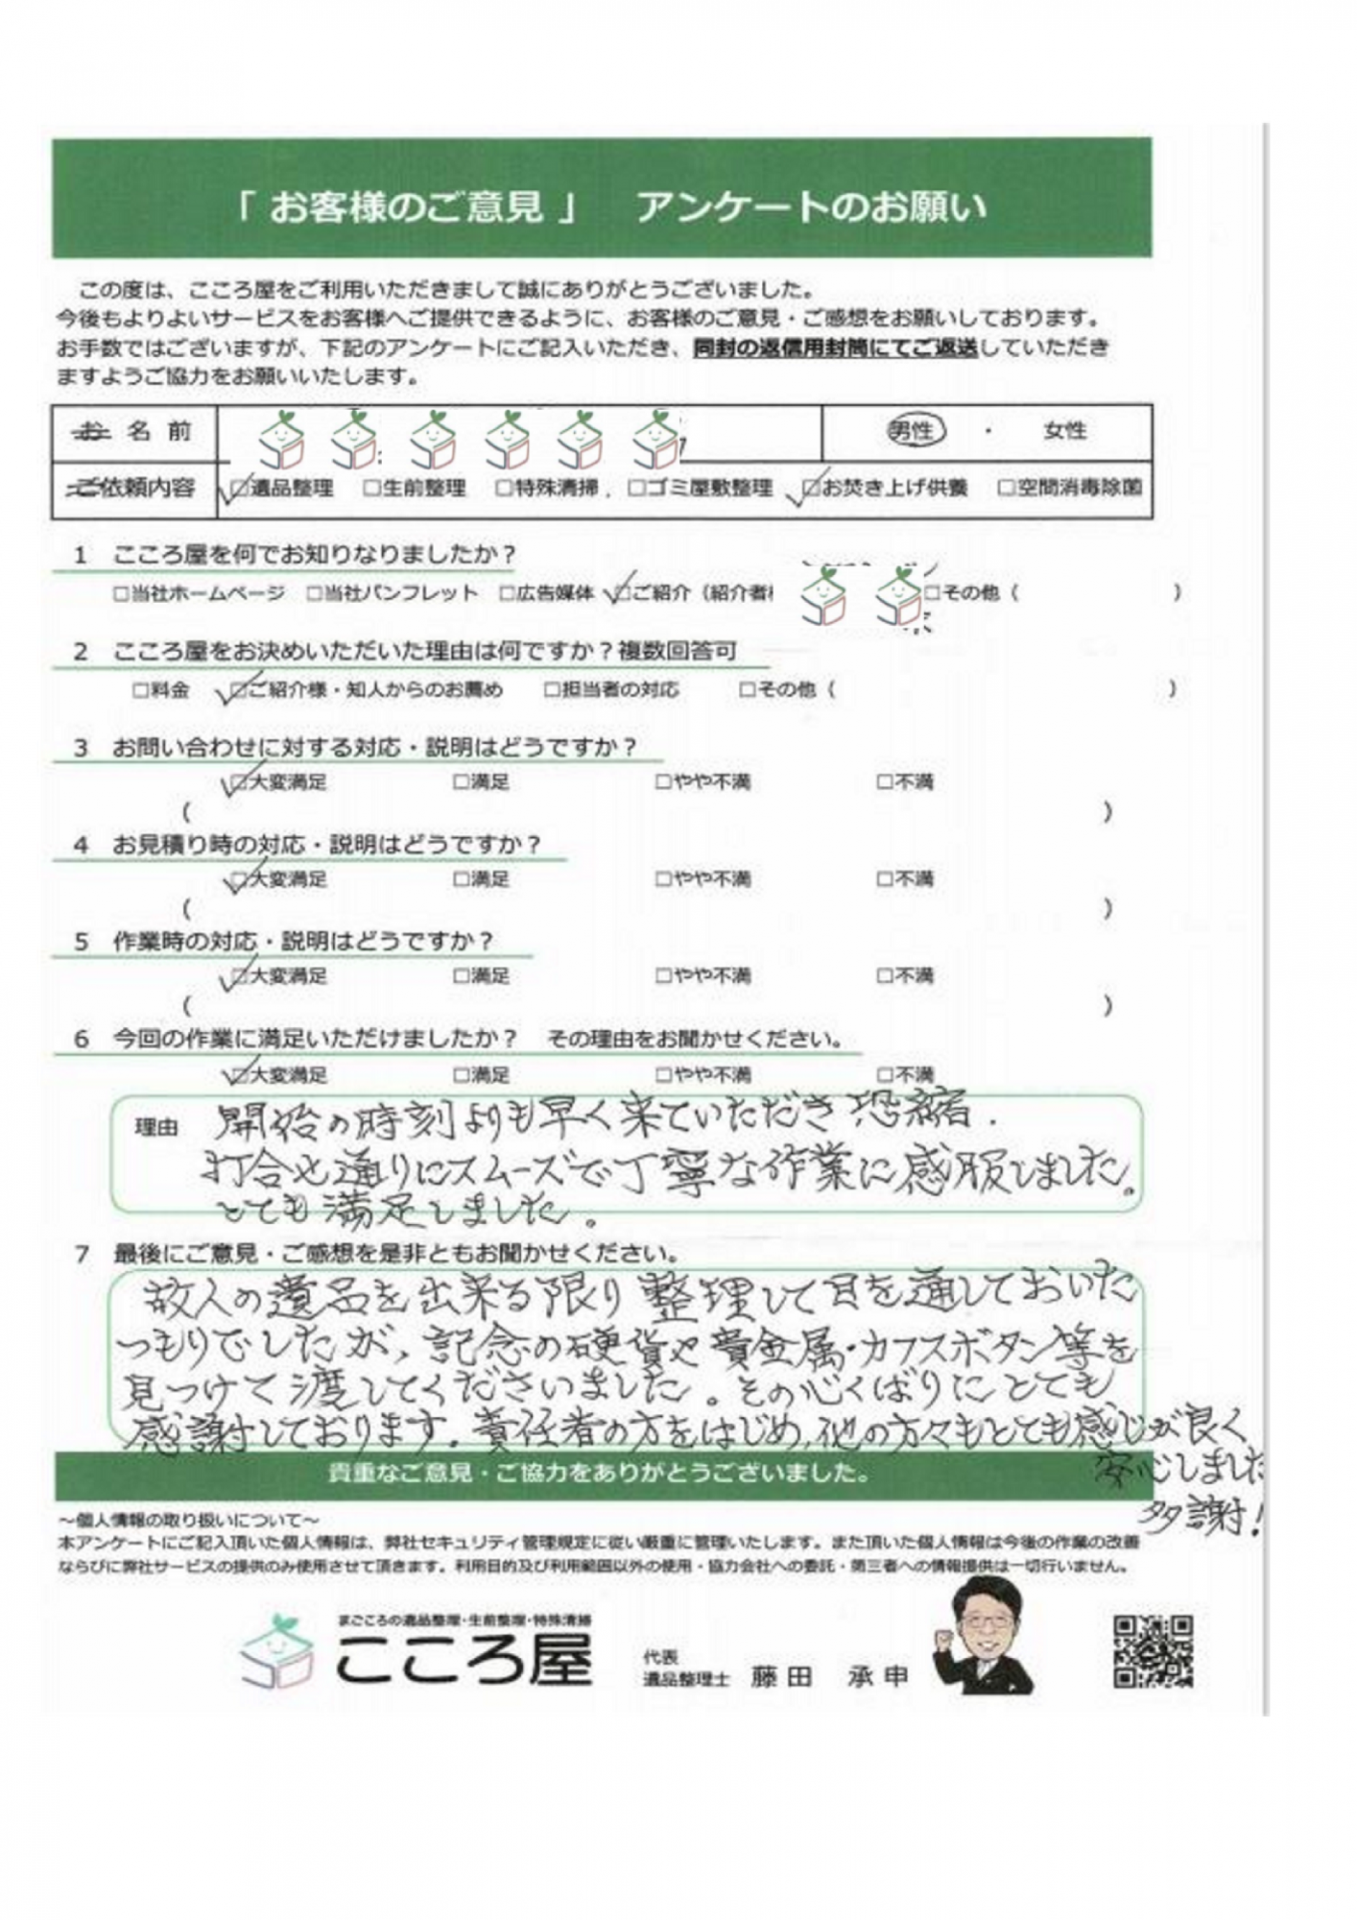 「 お客様のご意見 」 アンケートのお願い
この度は、こころ屋をご利用いただきまして誠にありがとうございました。
今後もよりよいサービスをお客様へご提供できるように、お客様のご意見・ご感想をお願いしております。
お手数ではございますが、下記のアンケートにご記入いただき、同封の返信用封筒にてご返送していただき
ますようご協力をお願いいたします。
お 名 前 男性 ・ 女性
ご依頼内容 ☑遺品整理 □生前整理 □特殊清掃 □ゴミ屋敷整理 ☑お焚き上げ供養 □空間消毒除菌
1 こころ屋を何でお知りなりましたか？
□当社ホームページ □当社パンフレット □広告媒体 ☑ご紹介（紹介者 □その他（ ）
2 こころ屋をお決めいただいた理由は何ですか？複数回答可
□料金 ☑ご紹介様・知人からのお薦め □担当者の対応 □その他（ ）
3 お問い合わせに対する対応・説明はどうですか？
☑大変満足 □満足 □やや不満 □不満
（ ）
4 お見積り時の対応・説明はどうですか？
☑大変満足 □満足 □やや不満 □不満
（ ）
5 作業時の対応・説明はどうですか？
☑大変満足 □満足 □やや不満 □不満
（ ）
6 今回の作業に満足いただけましたか？ その理由をお聞かせください。
☑大変満足 □満足 □やや不満 □不満
理由 開始の時刻よりも早く来ていただき恐縮.
打合せ通りにスムーズで丁寧な作業に感服しました。
とても満足しました。
7 最後にご意見・ご感想を是非ともお聞かせください。
故人の遺品を出来る限り整理して目を通しておいた
つもりでしたが、記念の硬貨や貴金属・カフスボタン等を
見つけて渡してくださいました。その心くばりにとても
感謝しております。責任者の方をはじめ、他の方々もとても感じが良く
安心しました
多謝！
貴重なご意見・ご協力をありがとうございました。
～個人情報の取り扱いについて～
本アンケートにご記入頂いた個人情報は、弊社セキュリティ管理規定に従い厳重に管理いたします。また頂いた個人情報は今後の作業の改善
ならびに弊社サービスの提供のみ使用させて頂きます。利用目的及び利用範囲以外の使用・協力会社への委託・第三者への情報提供は一切行いません。
まごころの遺品整理・生前整理・特殊清掃
こころ屋
代表
遺品整理士 藤田 承申